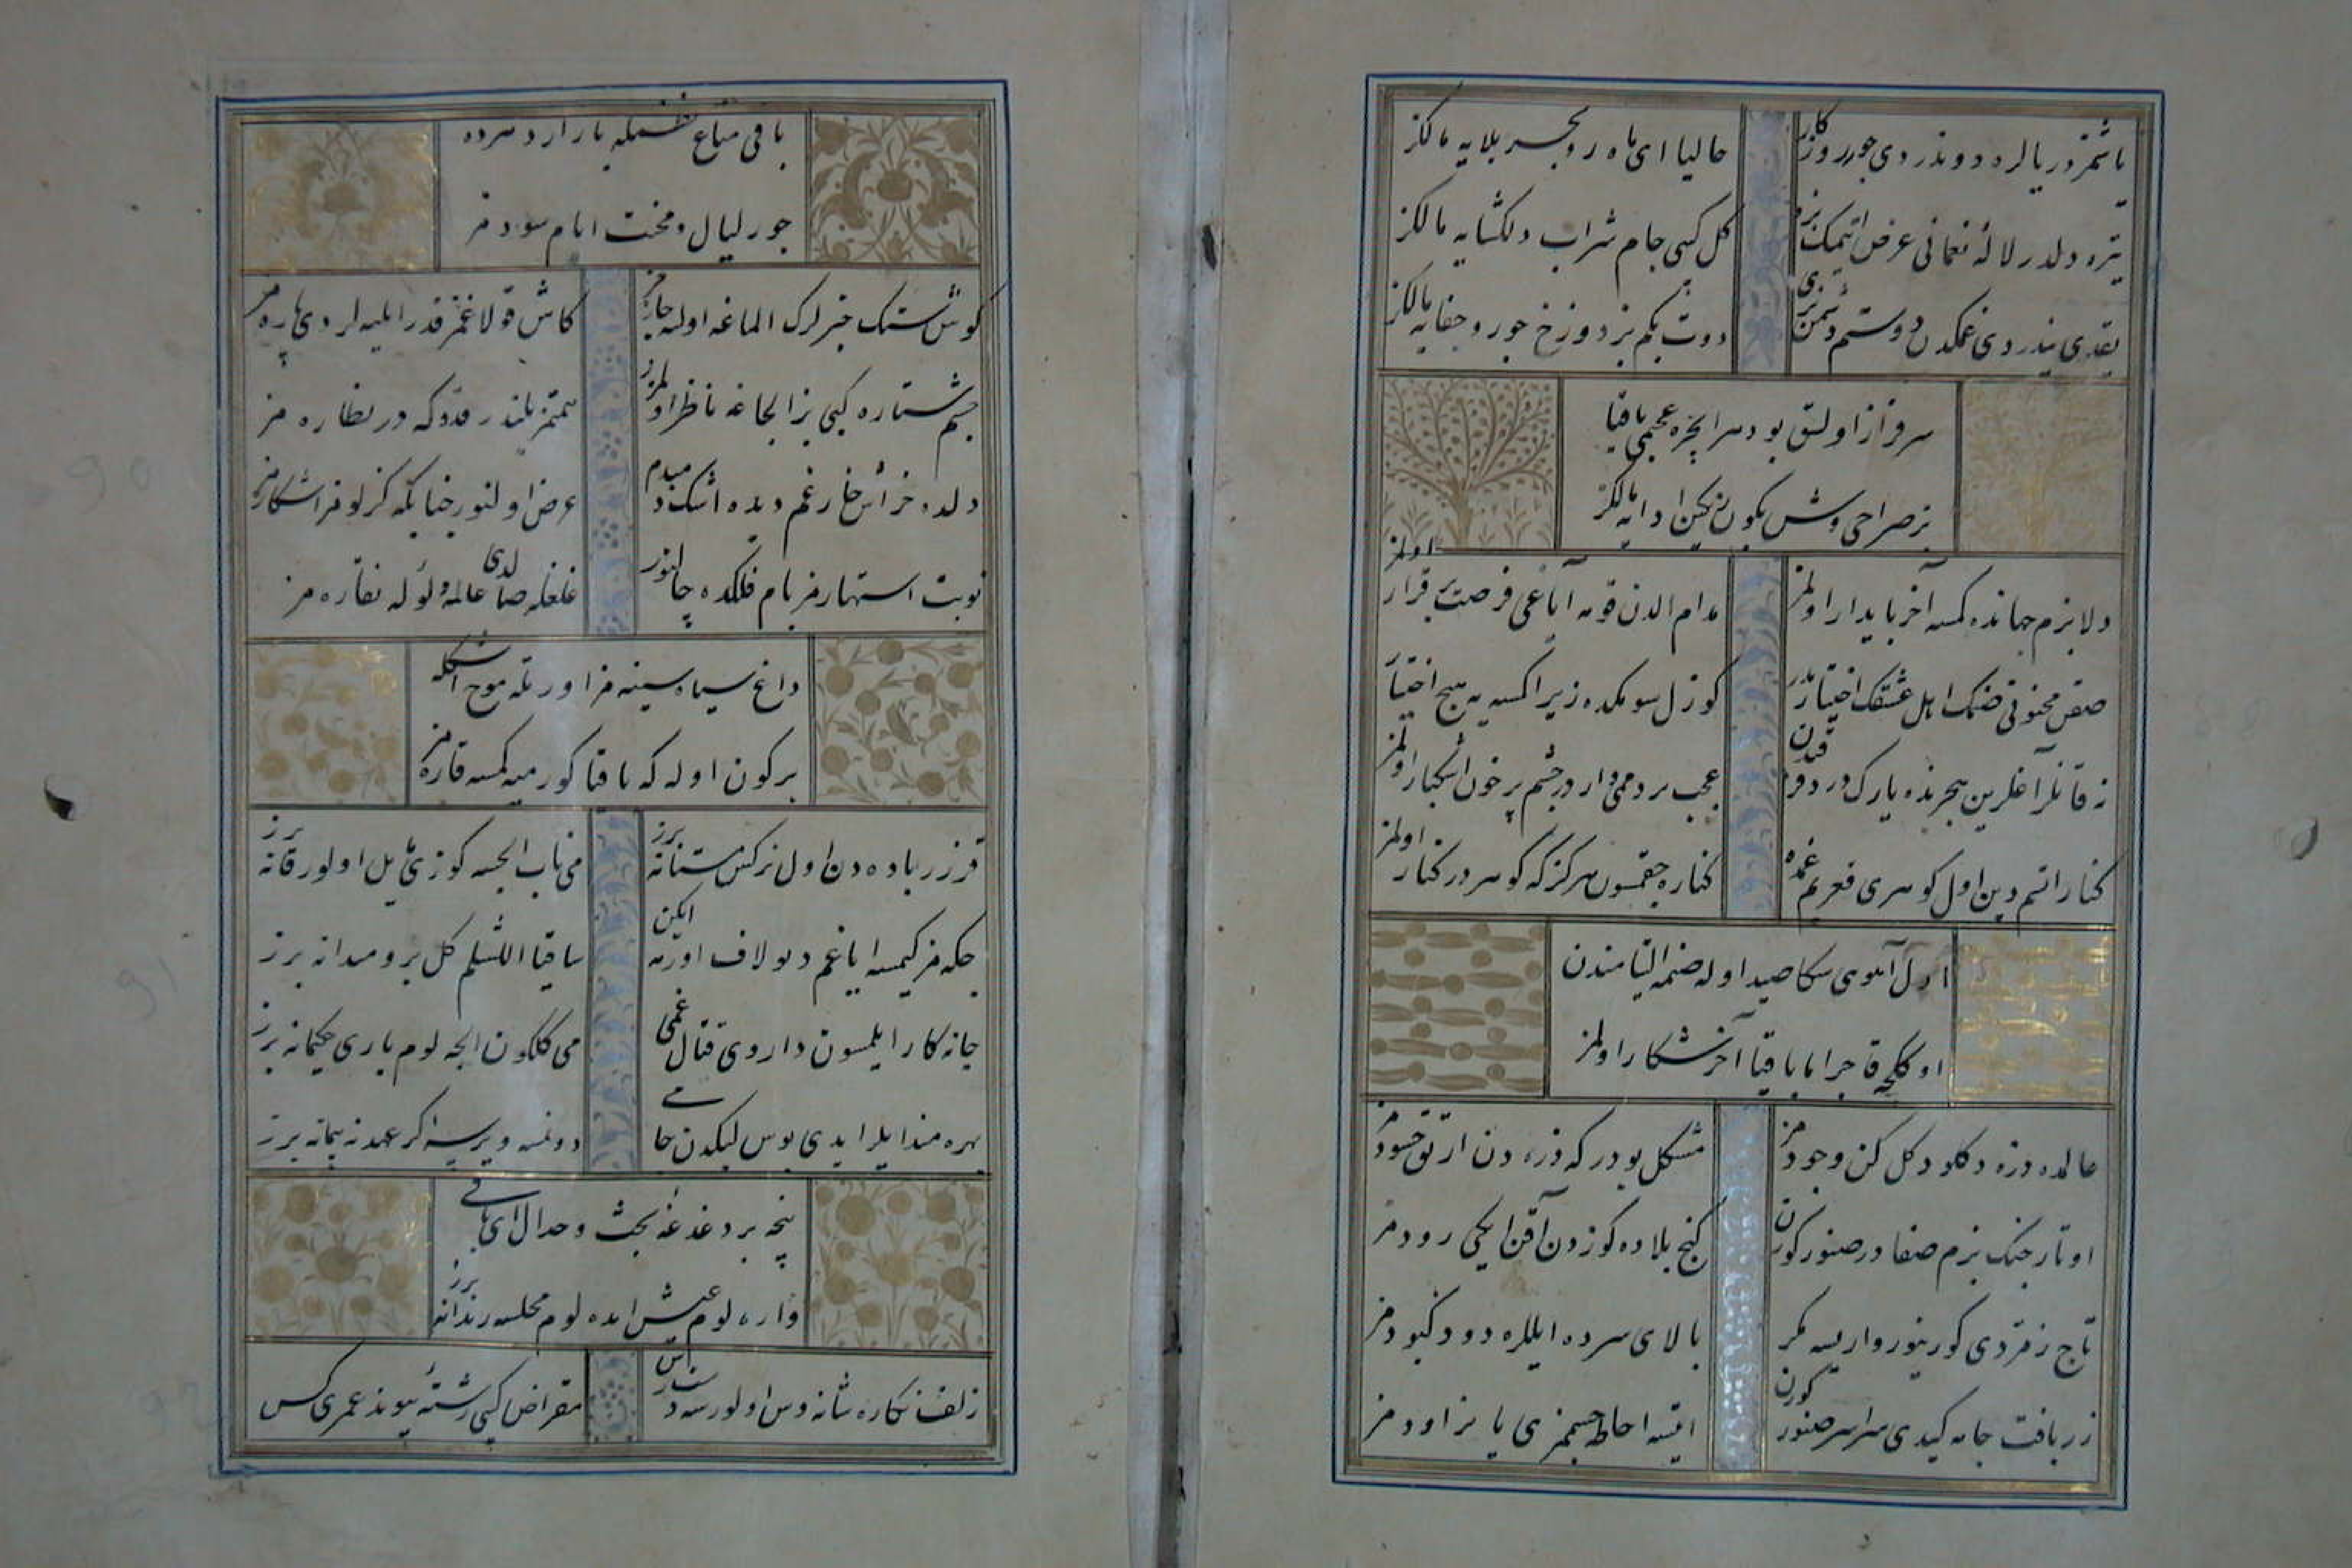 یاشمز دریالره دوندردی جور روزکار
حالیا ای ماه رو بحر بلایه مالکز
تیره دلدر لالهٔ نعمانی عرض اتیمک بزه
کل کبی جام شراب دلکشایه مالکز
یقدی یندردی غمکدن دوستم دشمن بزی
دوزخ جور و جفایه مالکز
سرفراز اولسق بو دمر انجره عجبمی باقیا
بز صراحی وش بکون رنکین ادایه مالکز
دلا بزم جهانده کمسه آخر پایدار اولمز
مدام الدن قومه آیاغی فرصت برقرار اولمز
صقن مجنونی ضنک اهل عشقک اختیاریدر
کوزل سومکده زیرا کمسیه هیچ اختیار اولمز
نه قانلر آغلرین هجرنده یارک درد فرقدن
عجب مردمی وار در چشم پر خون اشکبار اولمز
کنار اتم دین اول کوهری قعر یم غمده
کناره چقمسون هرکز که کوهر در کنار اولمز
اول آهوی سکا صید اوله ضنمه التیامندن
اوکلجه قاجر اما باقیا آخر شکار اولمز
عالمده ذره دکلو دکل کن وجودمز
مشکل بودر که ذره دن ارتق حسودمز
اوتار چنک بزم صفا در صنور کورن
کنج بلاده کوزدن آقن ایکی رودمز
تاج زمردی کورینور وار ایسه مکر
بالای سرده ایللره دود کبودمز
زربافت جامه کیدی سراسر صنور کورن
ایتسه احاطه جسممزی یا نر اودمز
باقی متاع نظمله بازار دهرده
جور لیال و محنت ایام سودمز
کوش ستمک خبرلرک الماغه اوله جاره مز
کاش قولاغمز قدر ایلیه لردی پاره مز
چشم ستاره کبی بز الجاغه ناظر اولمزز
همتمز بلند در قدوکه در نظاره مز
دلده خراش خار غم دیده اشک دمبدم
عرض اولنور جنابکه کزلو مز اشکاره مز
نوبت اشتهارمز بام فلکده چالنور
غلغله صالدی عالمه ولوله نقاره مز
داغ سیاه سینه مز اورتله موج اشکله
بر کون اوله که باقیا کورمیه کمسه قاره مز
قزرر باده دن اول نرکس مستانه برز
می ناب ایچسه کوزی مایل اولور قانه برز
چکه مز کیمسه ایاغم دیو لاف اورمه ایکن
ساقیا اللشلم کل برو میدانه برز
جانه کار ایلمسون داروی قتال غمی
می کلکون ایچه لوم باری حکیمانه برز
بهره مند ایلر ایدی بوس لبکدن جامی
دونمسه ویرسه اکر عهدنه پیمانه برز
نیجه بر دغدغه بحث و جدال ای باقی
واره لوم عیش ایده لوم مجلس رندانه برز
زلف نکاره شانه وش اولورسه دسترس
مقراض کبی رشتهٔ پیوند عمری کس